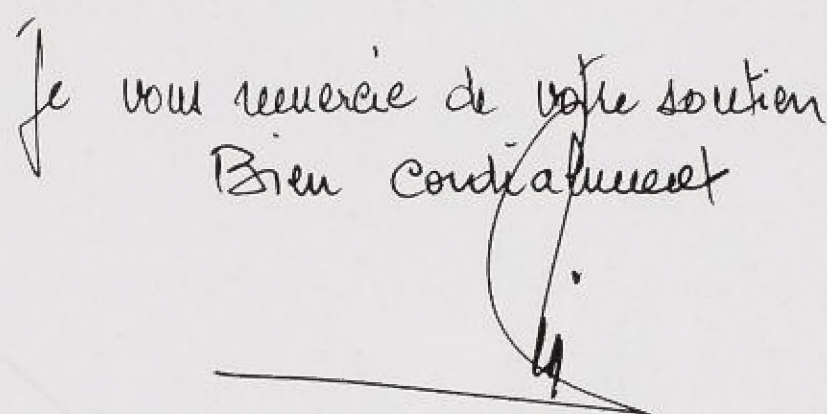 Je vous remercie de votre soutien
Bien cordialement